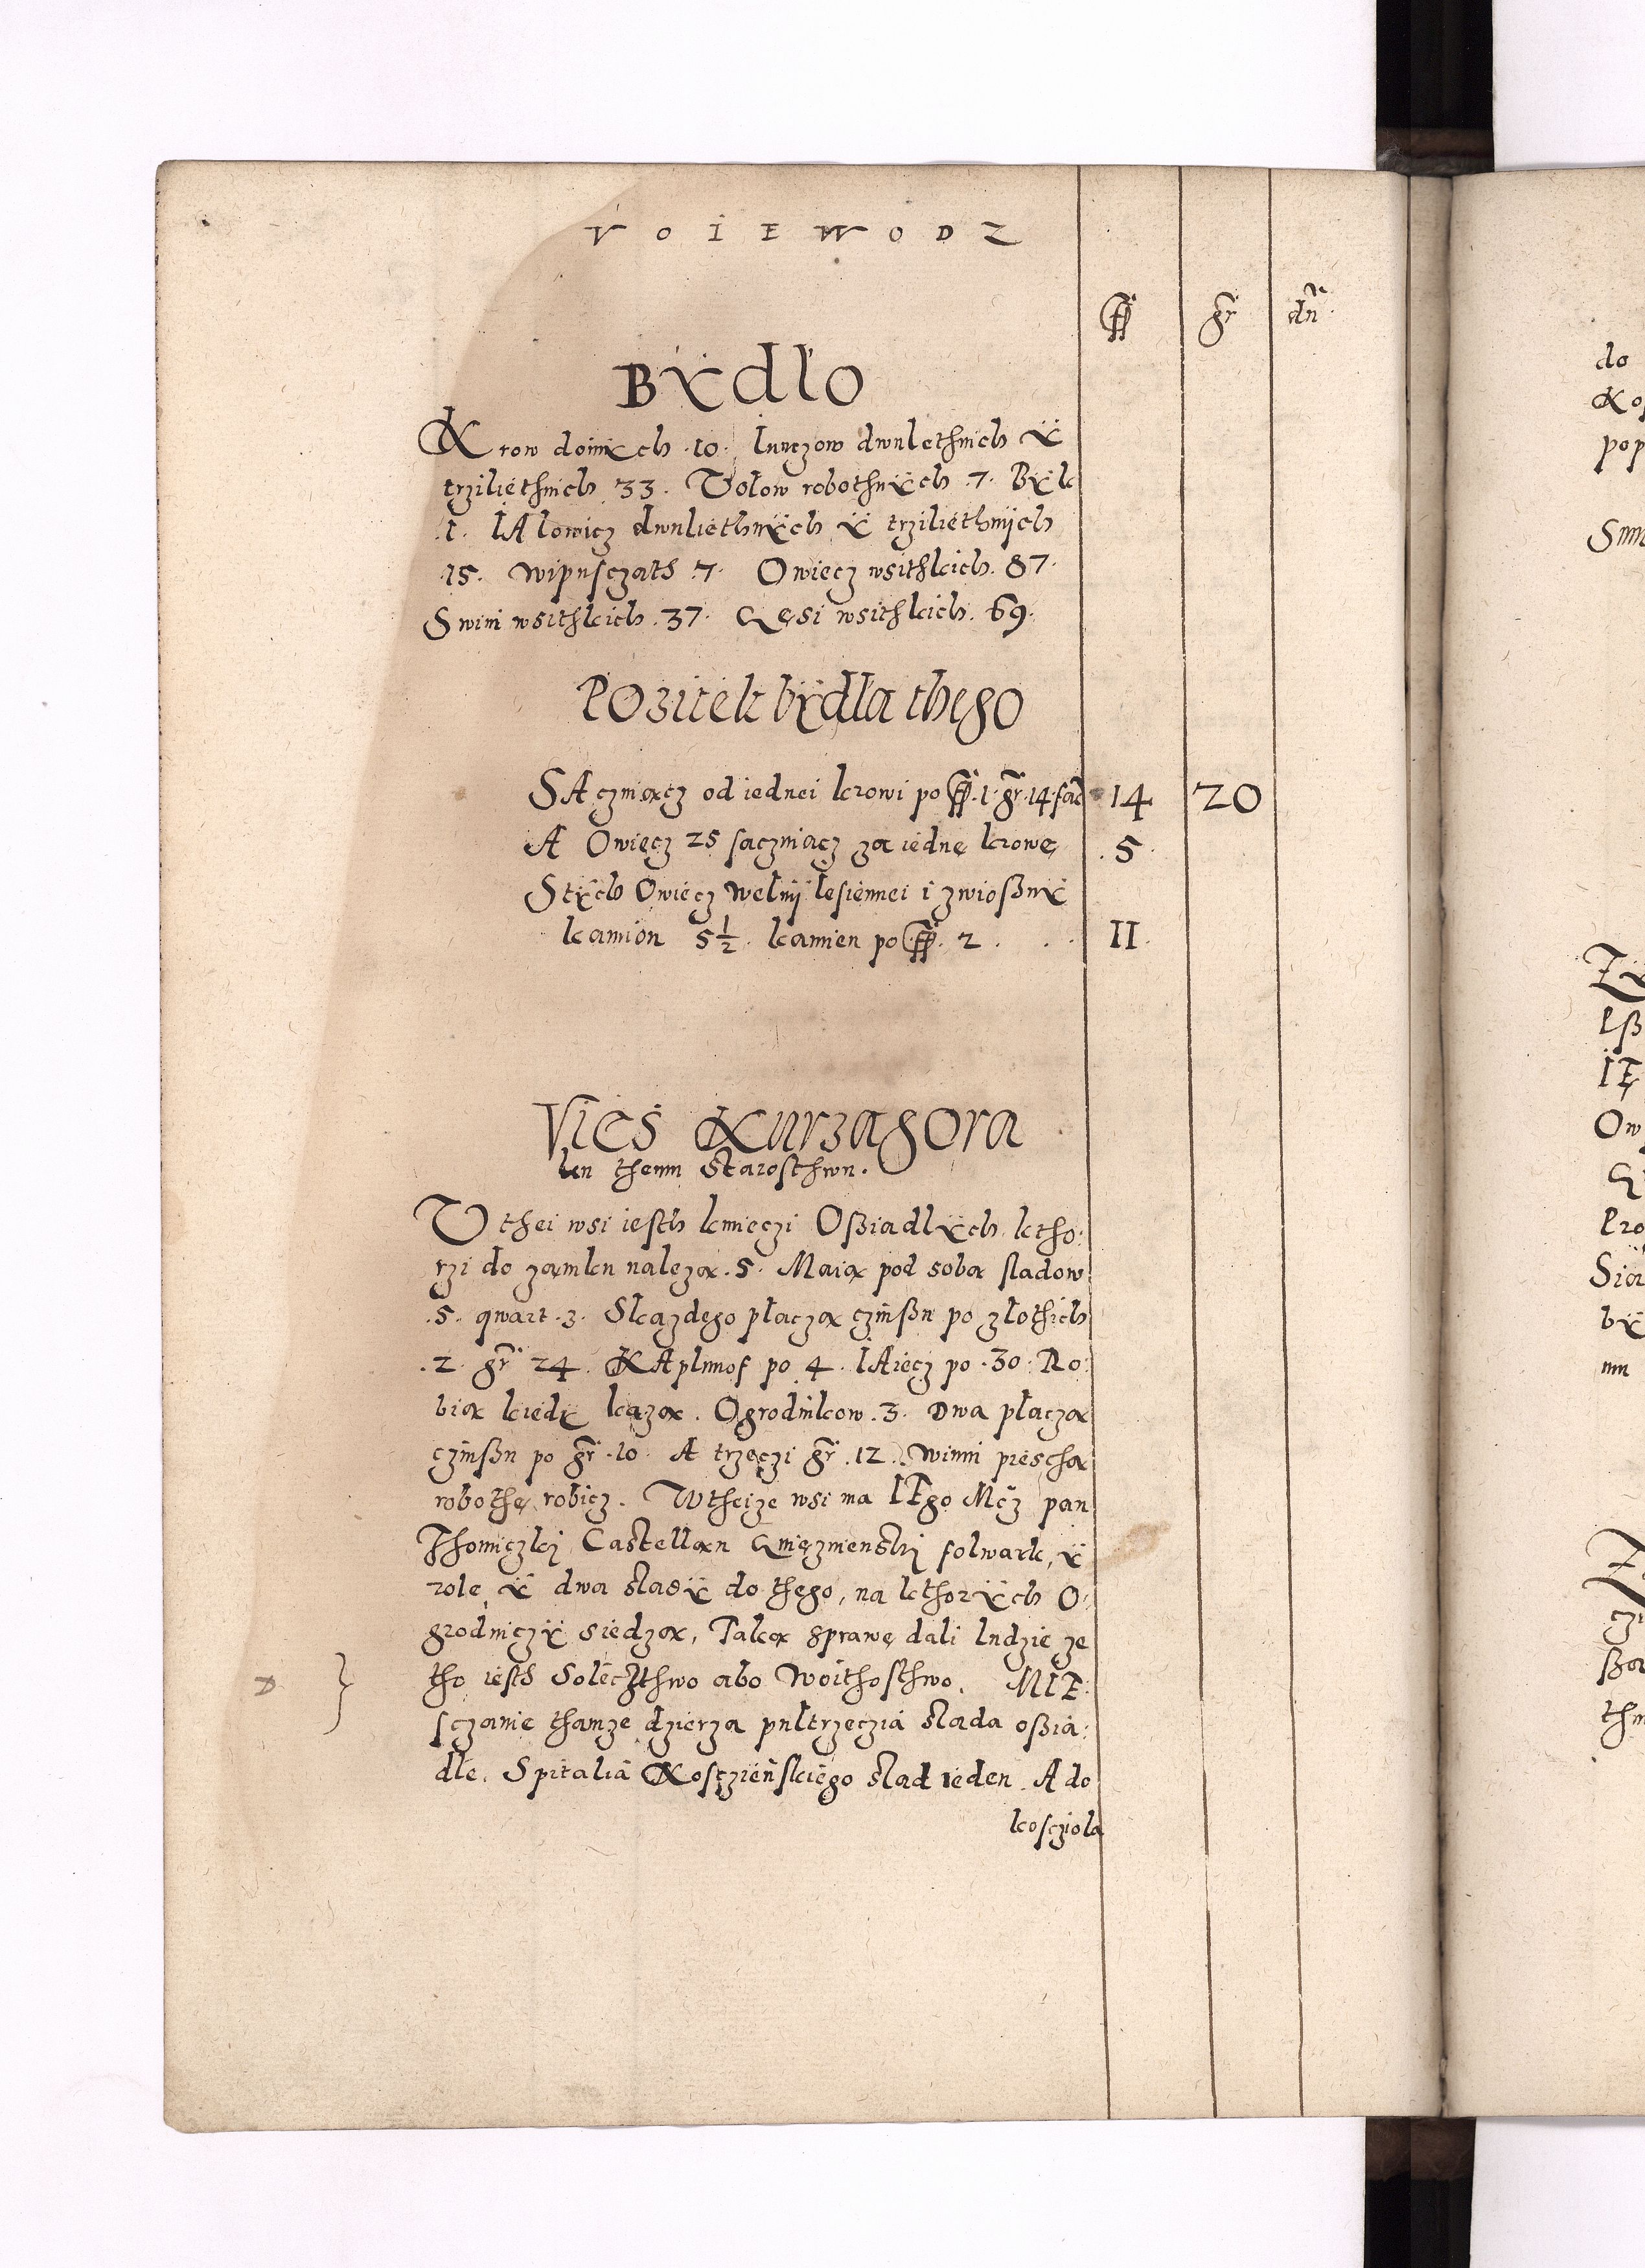 VOIEWODZ
ff gr dn
Bÿdło
Krow doinÿch .10. Iunczow dwulethnich ÿ
trziliethnich 33. Vołow robothnÿch .7. Bÿk
.1. IAłowicz dwuliethnÿch ÿ trziliethnijch
.15. wipusczath .7. Owiecz wsithkich. 87.
Swini wsithkich .37. Gęsi wsithkich. 69.
POzitek bÿdła thego
SAczniącz od iednei krowi po ff .1. gr .14. fac 14 20
A Owięcz 25 sacznięcz za iednę krowę .5.
Stÿch Owięcz Welnij Iesiennei i zwioßnÿ
kamion 5 1/2. kamien po ff. 2 . . . II.
Vies Kurzagora
Wu themu Starosthwu.
V thei wsi iesth kmieczi Oßiadlÿch, ktho:
rzi do zamku należą .5. Maią pod sobą sladow
.5. qwart .3. Skazdego płaczą czinßu po złothich
.2. gr 24. KApłunof po .4. IAiecz po .30. Ro:
bią kiedÿ każą. Ogrodnikow .3. Dwa płaczą
czinßu po gr .10. A trzeczi gr .12. Winni piescha
robothę robicz. Wtheize wsi ma IEgo Mcz pan
Thomiczki Castellan Gnięznienski folwark, ÿ
rolę ÿ dwa sladÿ do thego, na kthorÿch O:
grodniczÿ siedzą, Taką sprawę dali ludzie ze
tho iesth Solecżthwo abo Woithosthwo. MIE:
sczanie thamze dzierza pultrzeczia slada oßia:
dłe. Spitalia Kosczieńskiego slad ieden. A do
kosczioła
do
Ko
pop